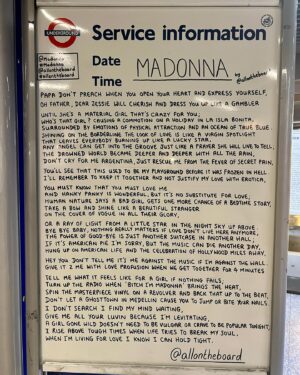 UNDERGROUND
Service information
@madonna
#madonna
@allontheboard
#allontheboard
Date
Time
MADONNA
by @allontheboard
PAPA DON'T PREACH WHEN YOU OPEN YOUR HEART AND EXPRESS YOURSELF,
OH FATHER, DEAR JESSIE WILL CHERISH AND DRESS YOU UP LIKE A GAMBLER
UNTIL SHE'S A MATERIAL GIRL THAT'S CRAZY FOR YOU;
WHO'S THAT GIRL? CAUSING A COMMOTION ON A HOLIDAY IN LA ISLA BONITA,
SURROUNDED BY EMOTIONS OF PHYSICAL ATTRACTION AND AN OCEAN OF TRUE BLUE
SHINING ON THE BORDERLINE THE LOOK OF LOVE IS LIKE A VIRGIN SPOTLIGHT
THAT LEAVES EVERYBODY BURNING UP LIKE A LUCKY STAR.
ANY ANGEL CAN GET INTO THE GROOVE JUST LIKE A PRAYER SHE WILL LIVE TO TELL,
THE DROWNED WORLD BECAME DEEPER AND DEEPER WITH ALL THE RAIN
DON'T CRY FOR ME ARGENTINA, JUST RESCUE ME FROM THE FEVER OF SECRET PAIN,
YOU'LL SEE THAT THIS USED TO BE MY PLAYGROUND BEFORE IT WAS FROZEN IN HELL
I'LL REMEMBER TO KEEP IT TOGETHER AND NOT JUSTIFY MY LOVE WITH EROTICA,
YOU MUST KNOW THAT YOU MUST LOVE ME
AND HANKY PANKY IS WONDERFUL, BUT IT'S NO SUBSTITUTE FOR LOVE;
HUMAN NATURE SAYS A BAD GIRL GETS ONE MORE CHANCE OF A BEDTIME STORY,
TAKE A BOW AND SHINE LIKE A BEAUTIFUL STRANGER
ON THE COVER OF VOGUE IN ALL THEIR GLORY.
OR A RAY OF LIGHT FROM A LITTLE STAR IN THE NIGHT SKY UP ABOVE
BYE BYE BABY, NOTHING REALLY MATTERS IF LOVE DON'T LIVE HERE ANYMORE,
THE POWER OF GOOD-BYE IS JUST ANOTHER SUITCASE IN ANOTHER HALL;
IF IT'S AMERICAN PIE I'M SORRY, BUT THE MUSIC CAN DIE ANOTHER DAY,
HUNG UP ON AMERICAN LIFE AND THE CELEBRATION OF HOLLYWOOD MILES AWAY.
HEY YOU DON'T TELL ME IT'S ME AGAINST THE MUSIC IF I'M AGAINST THE WALL
GIVE IT 2 ME WITH LOVE PROFUSION WHEN WE GET TOGETHER FOR 4 MINUTES
TELL ME WHAT IT FEELS LIKE FOR A GIRL IF NOTHING FAILS,
TURN UP THE RADIO WHEN 'BITCH I'M MADONNA' BRINGS THE HEAT,
SPIN THE MASTERPIECE VINYL ON A REVOLVER AND BACK THAT UP TO THE BEAT.
DON'T LET A GHOSTTOWN IN MEDELLIN CAUSE YOU TO JUMP OR BITE YOUR NAILS.
I DON'T SEARCH I FIND MY MIND WAITING,
GIVE ME ALL YOUR LUVIN BECAUSE I'M LEVITATING,
A GIRL GONE WILD DOESN'T NEED TO BE VULGAR OR CRAVE TO BE POPULAR TONIGHT;
I RISE ABOVE TOUGH TIMES WHEN LIFE TRIES TO BREAK MY SOUL,
WHEN I'M LIVING FOR LOVE I KNOW I CAN HOLD TIGHT.
@allontheboard